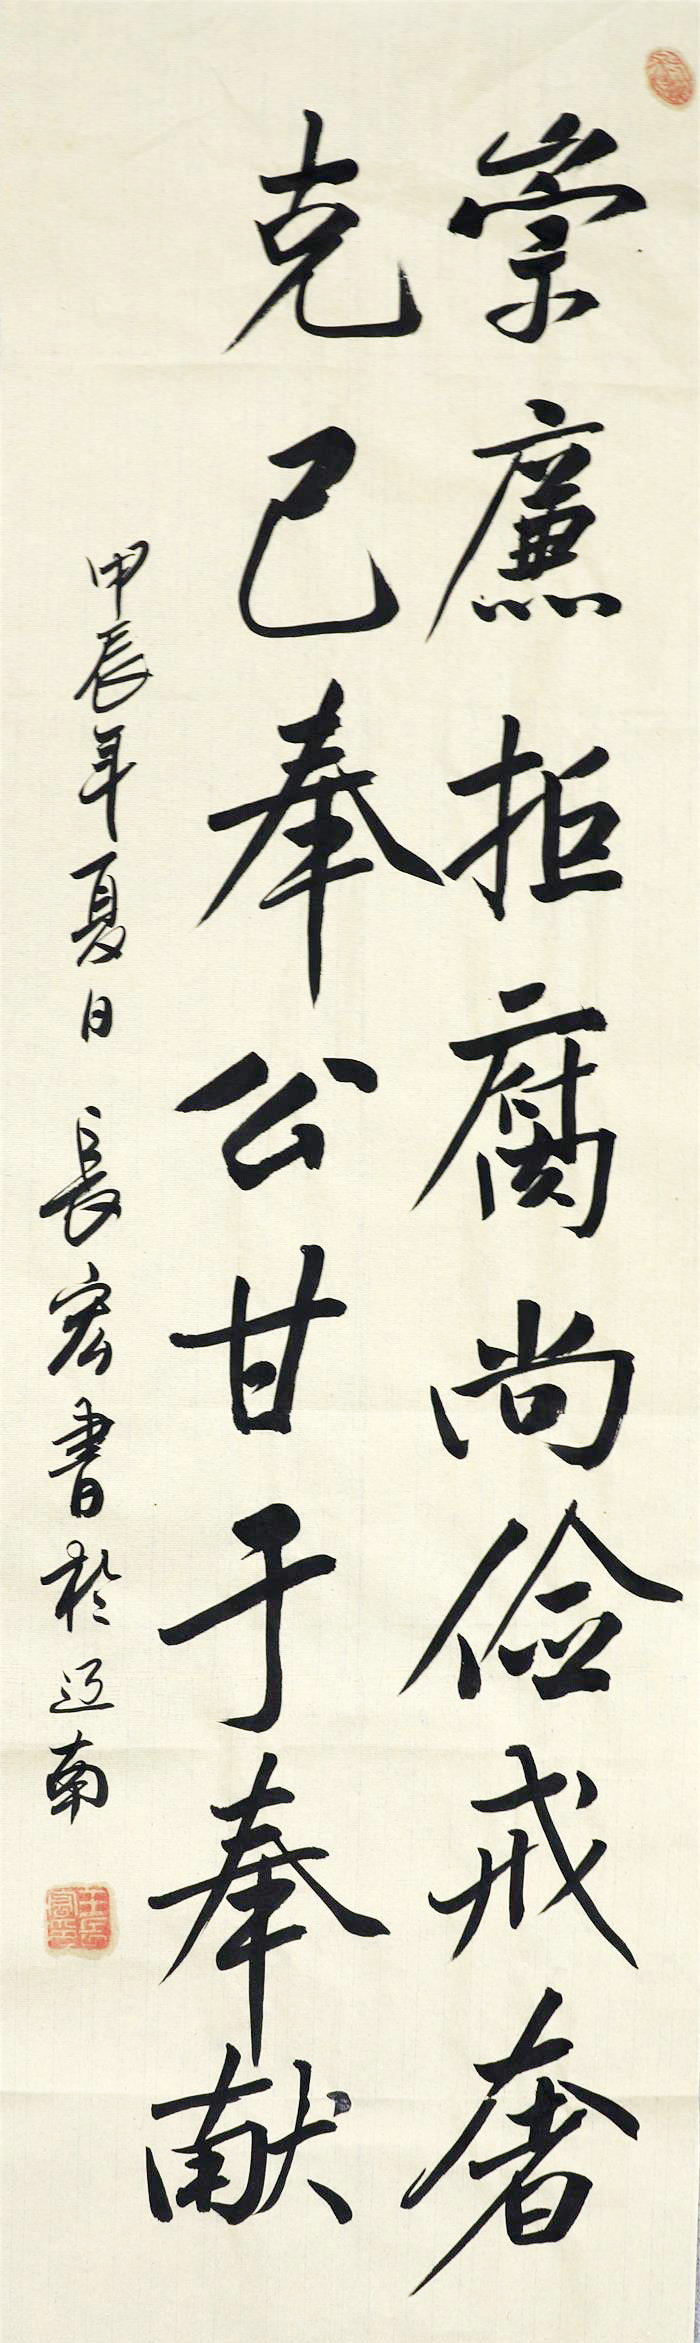 崇廉拒腐尚俭戒奢
克己奉公甘于奉献
甲辰年夏日 長宏書於辽南